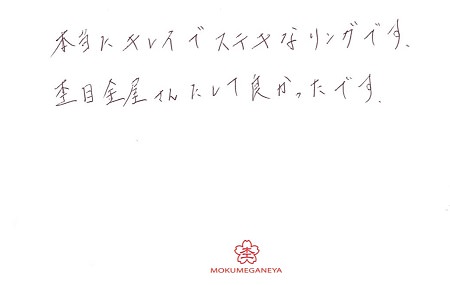 本当にキレイでステキなリングです.
杢目金屋さんにして良かったです.
杢
MOKUMEGANEYA